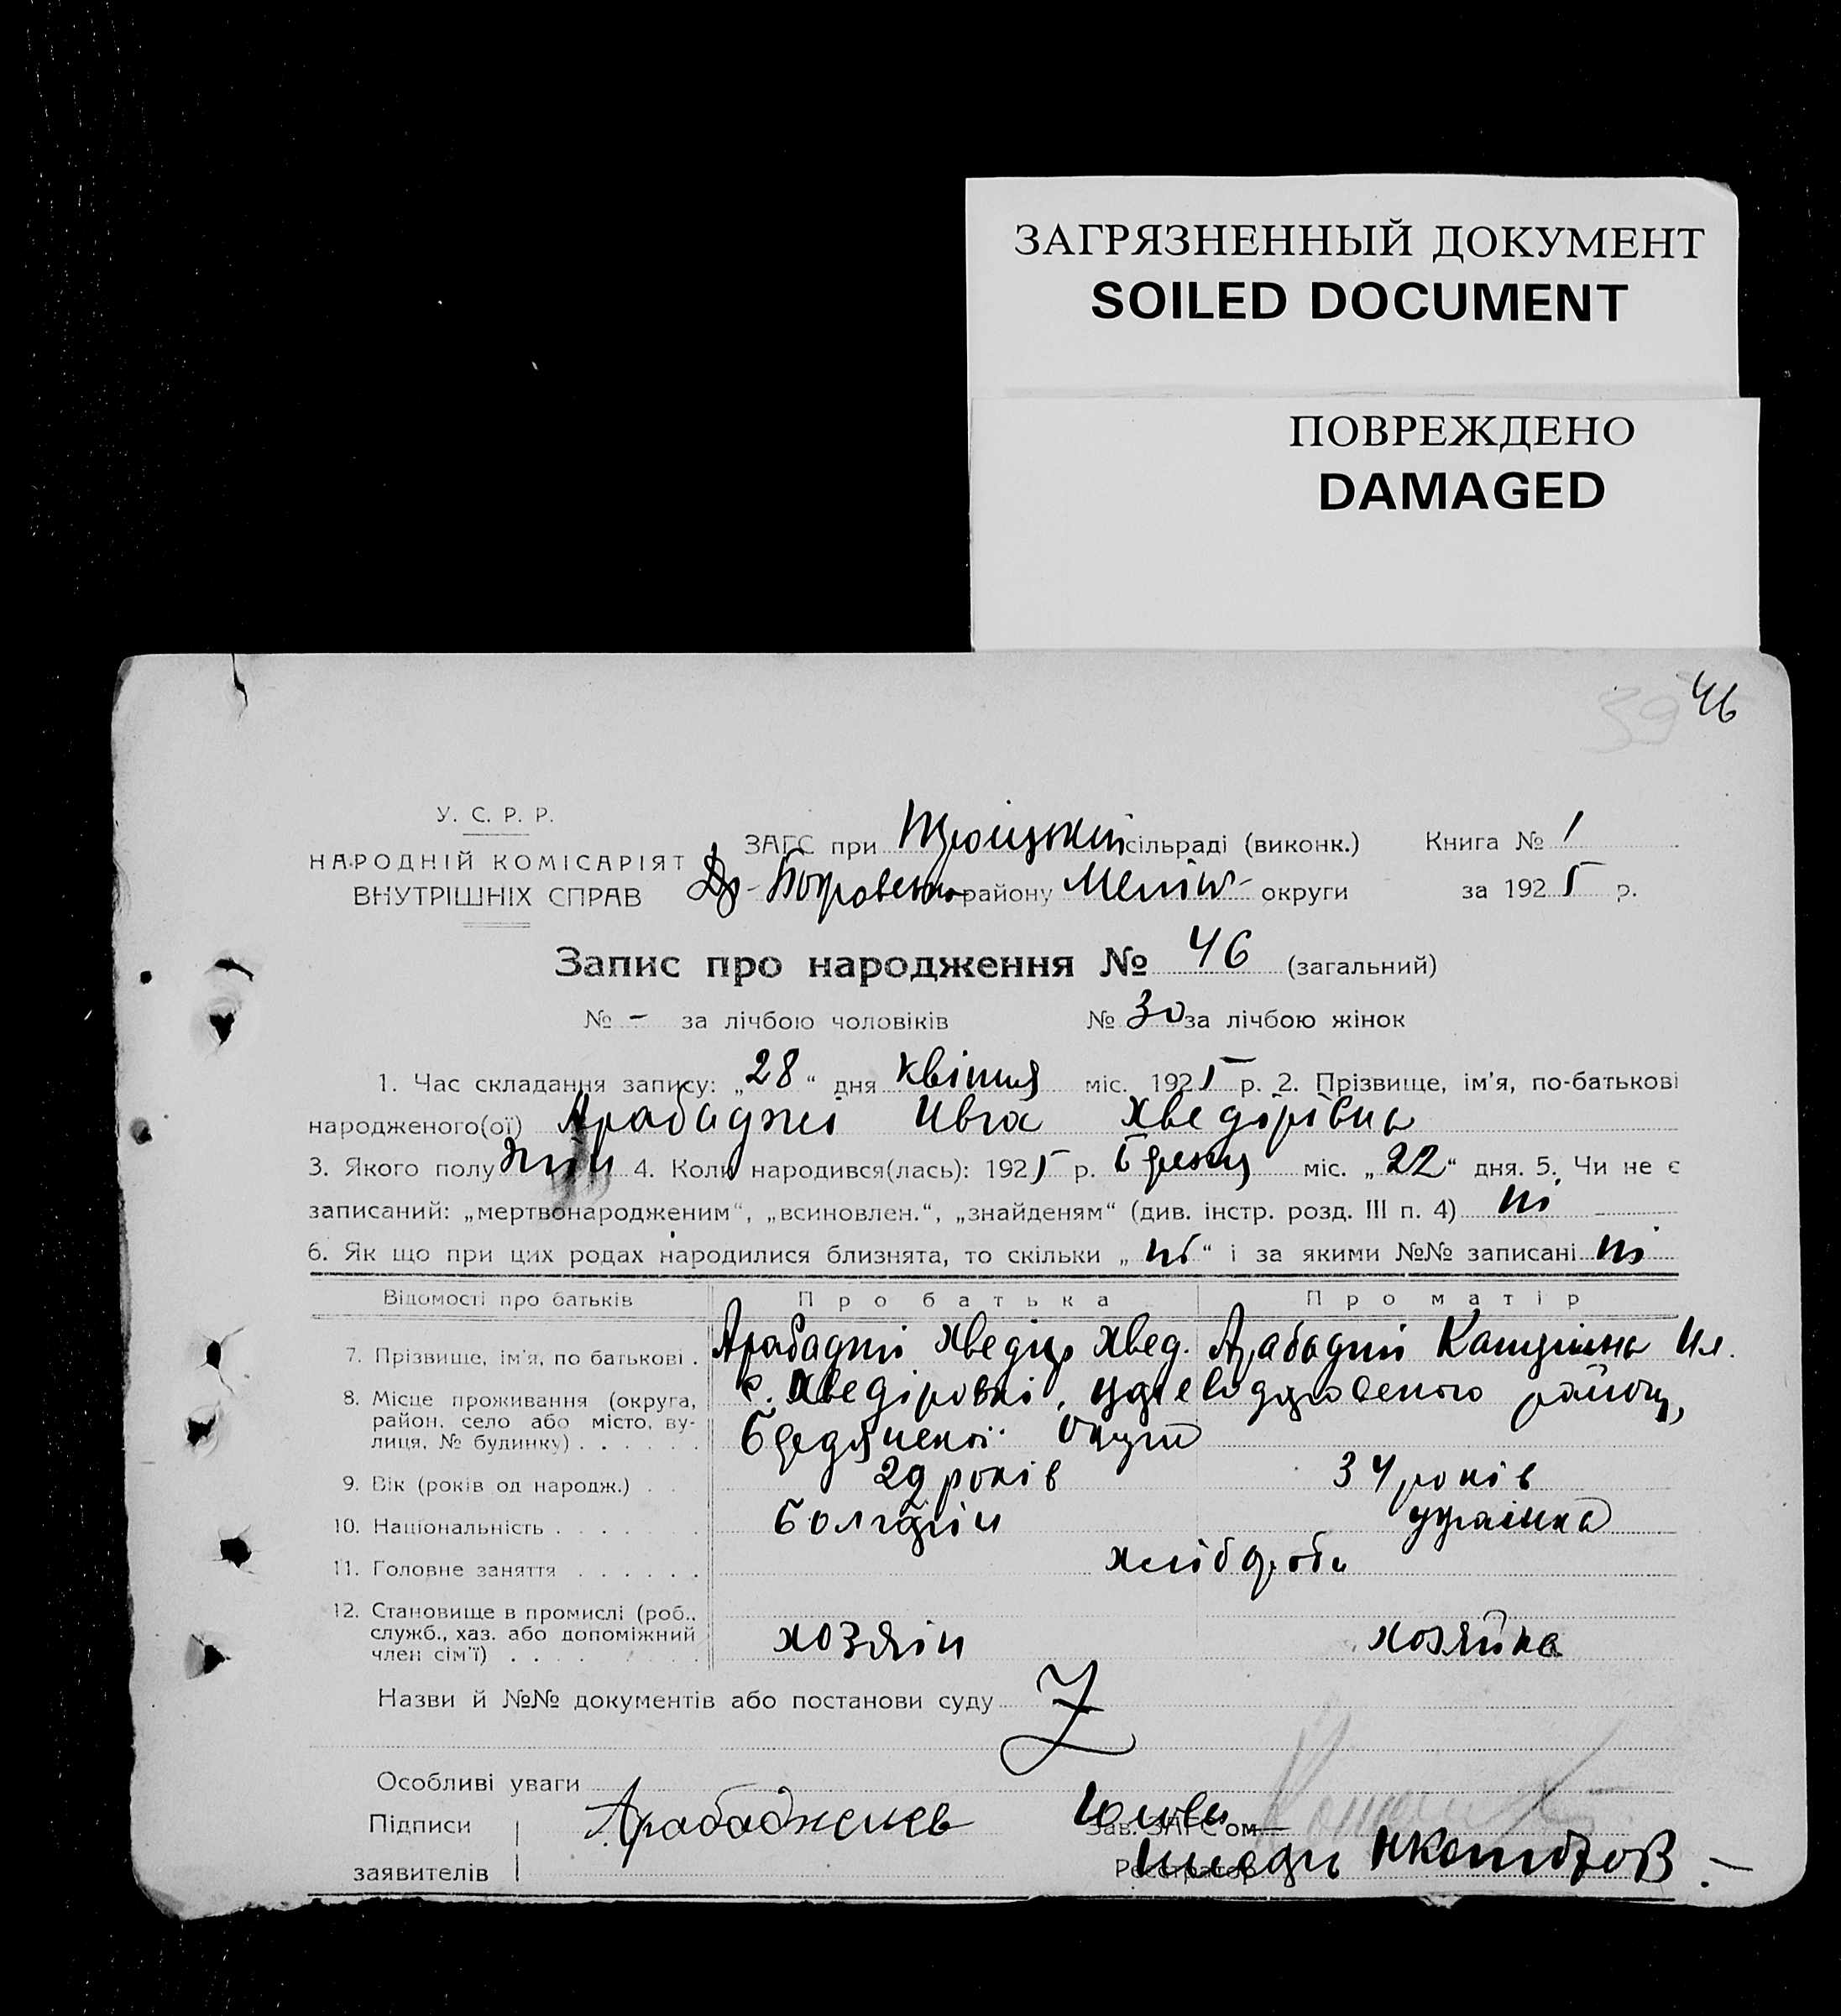 ЗАГРЯЗНЕННЫЙ ДОКУМЕНТ
SOILED DOCUMENT
ПОВРЕЖДЕНО
DAMAGED
39 46
У. С. Р. Р.
НАРОДНІЙ КОМІСАРІЯТ
ВНУТРІШНІХ СПРАВ
ЗАГС при Троіцькій сільраді (виконк.) Книга № 1
району Меліт- округи за 1925 р.
Запис про народження № 46 (загальний)
№ - за лічбою чоловіків № 30 за лічбою жінок
1. Час складання запису: „28“ дня квітня міс. 1925 р. 2. Прізвище, ім'я, по-батькові
народженого(ої) Арабаджі Ивга Хведірівна
3. Якого полу жін 4. Коли народився(лась): 1925 р. березня міс. „22“ дня. 5. Чи не є
записаний: „мертвонародженим“, „всиновлен.“, „знайденям“ (див. інстр. розд. III п. 4) ні
6. Як що при цих родах народилися близнята, то скільки „ні“ і за якими №№ записані ні
Відомості про батьків Про батька Про матір
7. Прізвище, ім'я, по батькові . Арабаджі Хведір Хвед. Арабаджі Катерина Ил.
8. Місце проживання (округа, район, село або місто, вулиця, № будинку) . . . . . . с. Хведіровкі, району,
округи
9. Вік (років од народж.) . . 29 років 34 років
10. Національність . . . . . . болгарін українка
11. Головне заняття . . . . . . хлібороби
12. Становище в промислі (роб., служб., хаз. або допоміжний член сім'ї) . . . . хозяін хозяйка
Назви й №№ документів або постанови суду
Особливі уваги
Підписи Арабаджиев Голова Зав. ЗАГС'ом
заявителів Реєстратор